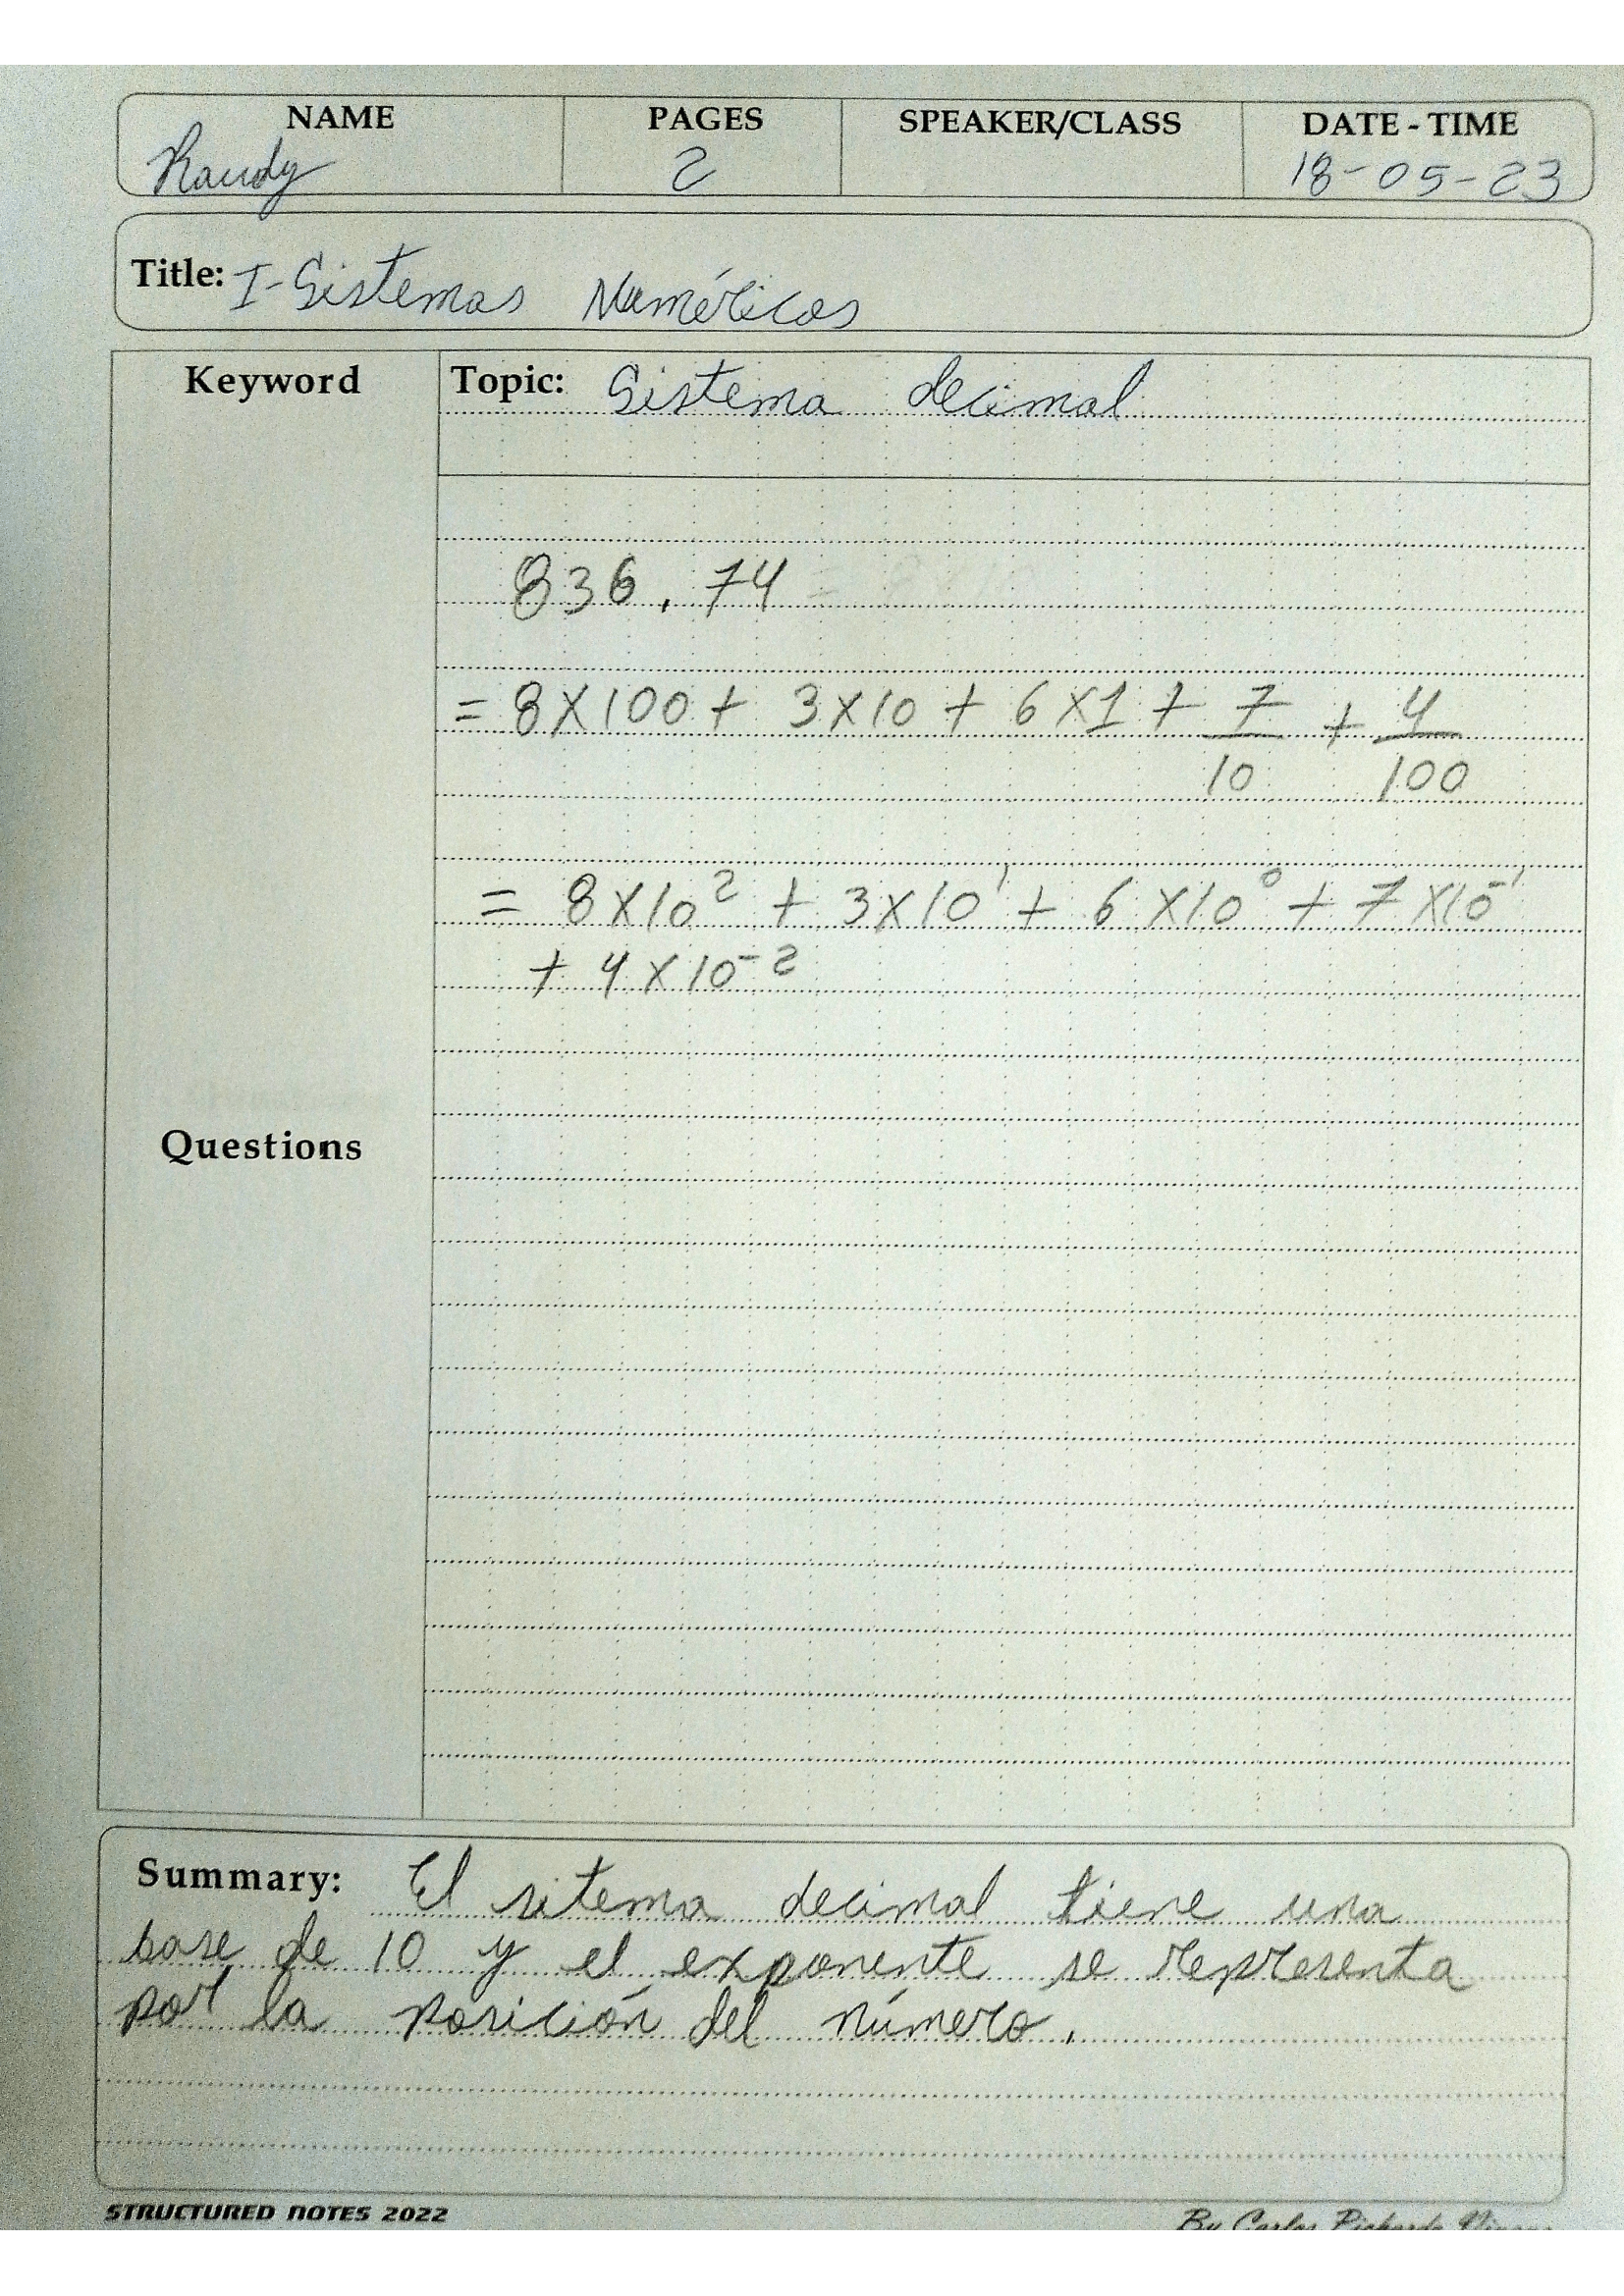 NAME PAGES SPEAKER/CLASS DATE - TIME
Raudy 2 18-05-23
Title: I-Sistemas Numéricos
Keyword Topic: Sistema decimal
836.74
= 8X100 + 3X10 + 6X1 + 7/10 + 4/100
= 8X10² + 3X10¹ + 6X10⁰ + 7X10⁻¹
+ 4X10⁻²
Questions
Summary: El sitema decimal tiene una
base de 10 y el exponente se representa
por la posición del número.
STRUCTURED NOTES 2022 By Carlos